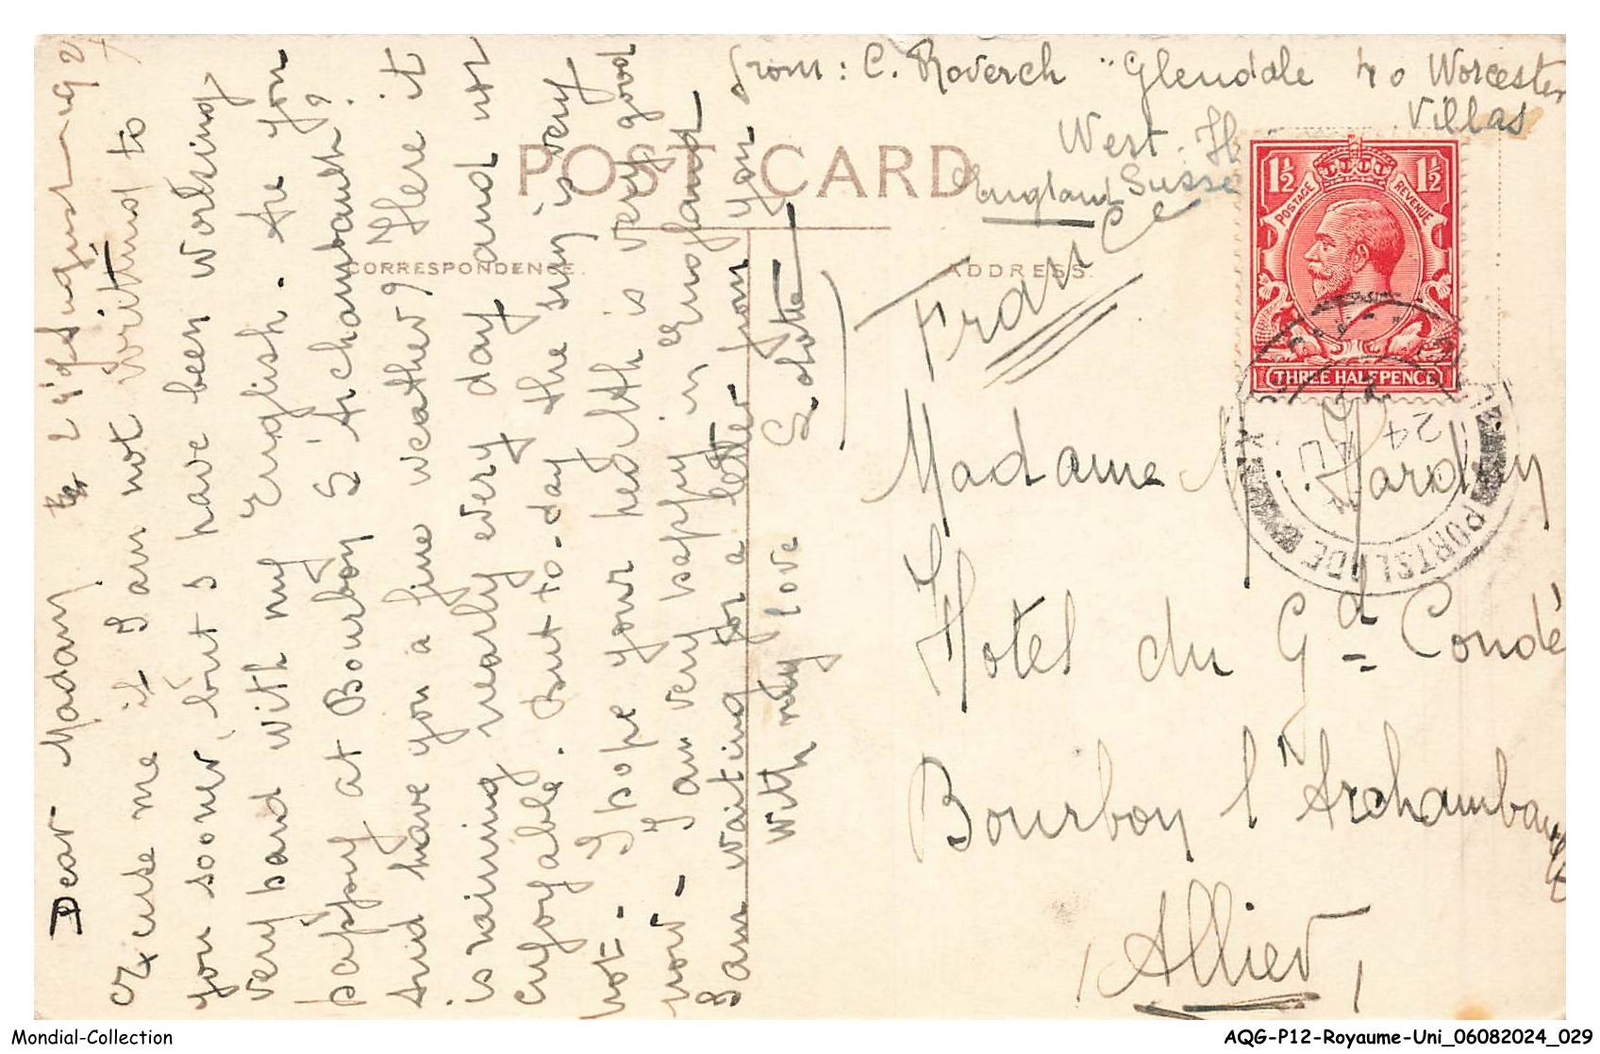 from: C. Roverch "Glendale 40 Worcester
Villas
West. H
England Susse
POST CARD
CORRESPONDENCE.
ADDRESS.
the 24 August 192
Dear Madam
Excuse me if I am not writind to
you sooner, but I have been working
very hard with my English. Are you
happy at Bourbon L'Archambault?
And have you a fine weather? Here it
is raining nearly every day and not
enjoyable. But to-day the sun is very
hot. I hope your health is very good
now. I am very happy in England
I am waiting for a letter from you
With my love Lolotte
France
Madame Jardin
Hotel du Gd Condé
Bourbon l'Archambault
Allier
1½ 1½
POSTAGE REVENUE
THREE HALFPENCE
24
AU
PORTSLADE
Mondial-Collection
AQG-P12-Royaume-Uni_06082024_029